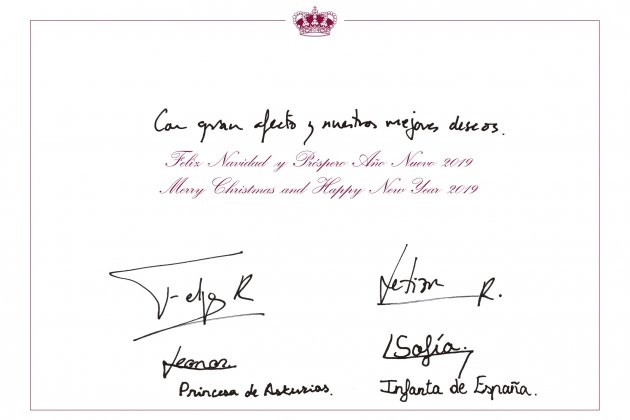 Con gran afecto y nuestros mejores deseos.
Feliz Navidad y Próspero Año Nuevo 2019
Merry Christmas and Happy New Year 2019
Felipe R
Letizia R.
Leonor
Princesa de Asturias.
Sofía.
Infanta de España.